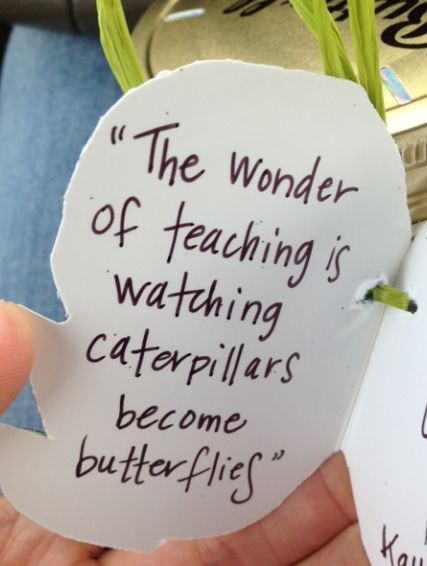 "The wonder
of teaching is
watching
caterpillars
become
butterflies"